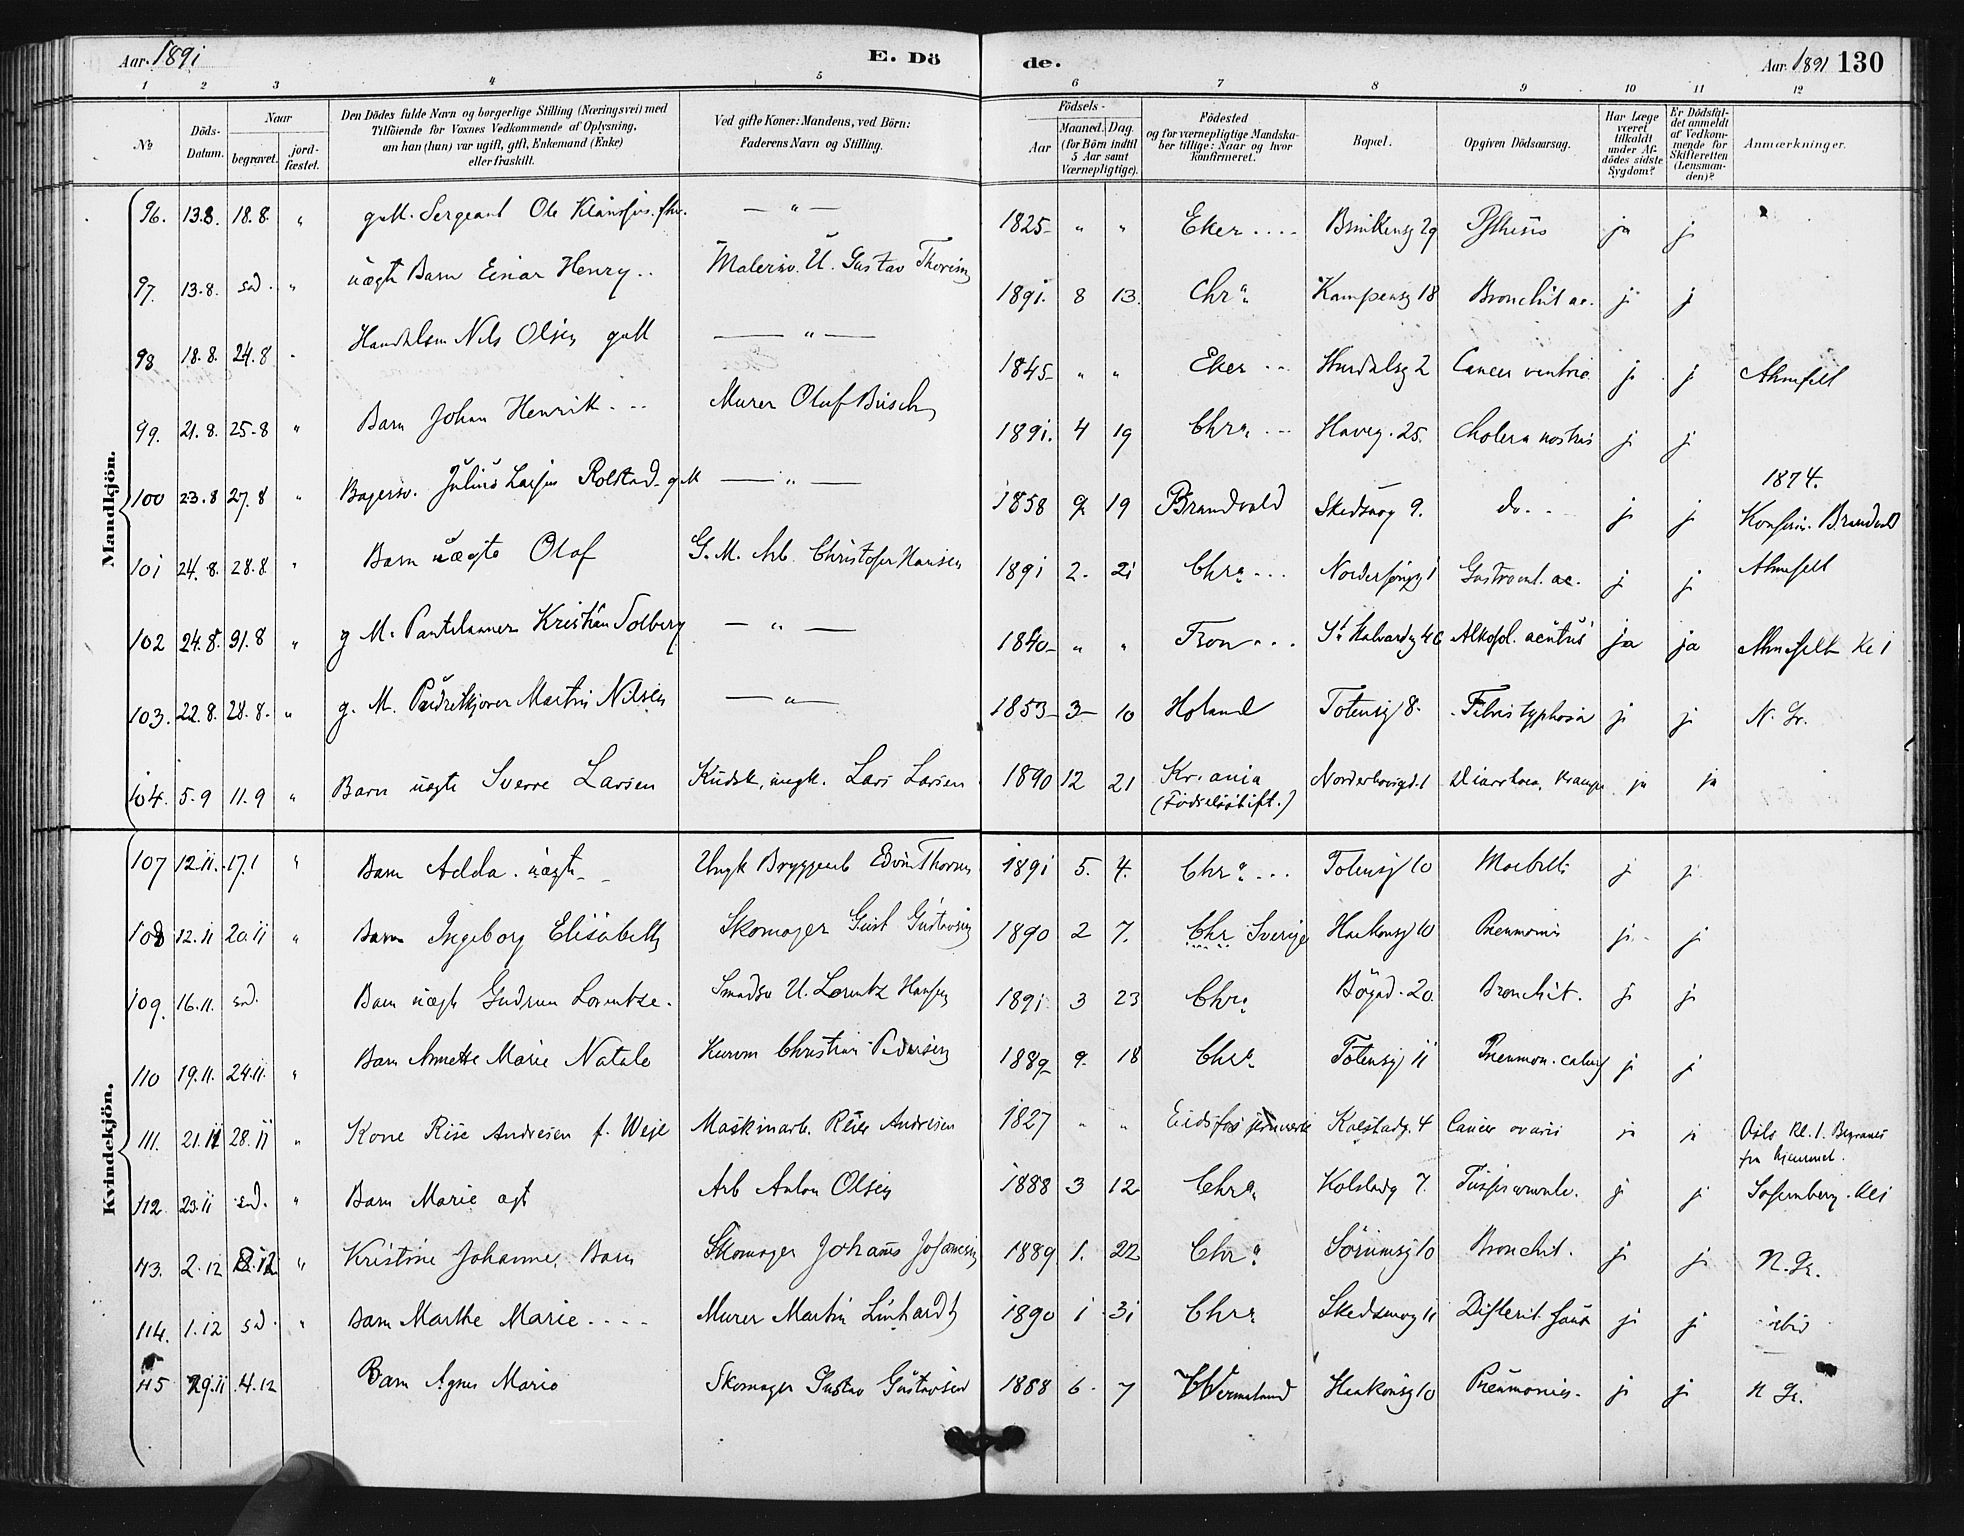 Aar 1891 E. Dö de. Aar 1891 130
1 2 3 4 5 6 7 8 9 10 11 12
No
Döds-Datum.
Naar
begravet.
jord-fæstet.
Den Dödes fulde Navn og borgerlige Stilling (Næringsvei) med
Tilföiende for Voxnes Vedkommende af Oplysning,
om han (hun) var ugift, gift, Enkemand (Enke)
eller fraskilt.
Ved gifte Koner: Mandens, ved Börn:
Faderens Navn og Stilling.
Födsels-
Aar
Maaned. Dag.
(for Börn indtil
5 Aar samt
Værnepligtige).
Födested
og for værnepligtige Mandska-
ber tillige: Naar og hvor
konfirmeret.
Bopæl.
Opgiven Dödsaarsag.
Har Læge
været
tilkaldt
under Af-
dödes sidste
Sygdom?
Er Dödsfal-
det anmeldt
af Vedkom-
mende for
Skifteretten
(Lensman-
den)?
Anmærkninger.
Mandkjön.
96. 13.8. 18.8. " g.M. Sergeant Ole — " — 1825 " " Eker .... 29 Pthisis ja j
97. 13.8. sd. " uægte Barn Einar Henry .. Malersv. U. Gustav 1891. 8 13. Chra Kampensg 18 Bronchit ac. j j
98 18.8. 24.8 " Handelsm Nils Olsen gM — " — 1845 " " Eker .. Hurdalsg 2 Cancer ventric. j j Almfelt
99. 21.8. 25.8 " Barn Johan Henrik ... Murer Olaf Busch 1891. 4 19 Chra ... Haveg. 25. Cholera nostras j j
100 23.8 27.8 " Bagersv. Julius Larsen Rolstad gM — " — 1858 9 19 Brandvold Skedsmog 9. do. .. j j 1874. Konfirm. Brandvold
101 24.8. 28.8 " Barn uægte Olaf G.M. Arb. Christofer Hansen 1891 2. 21 Chra ... 1 Gastroent. ac. j j Almfelt
102 24.8. 31.8 " g M. Pantelaaner Kristian Solberg — " — 1840 " " Tron ... St Halvardsg 46 Alkohol. acutus ja ja Almfelt Kl 1
103. 22.8. 28.8. " g. M. Pudretkjører Martin Nilsen — " — 1853 3 10 Høland Totensg 8. Febris typhosa j j N. Gr.
104. 5.9 11.9 " Barn uægte Sverre Larsen Kudsk, ungk. Lars Larsen 1890 12 21 Kr.ania
(Fødselsstift.) 1 Diarrhoea, Krampe ja ja
Kvindekjön.
107 12.11. 17.1 " Barn Adda. uægte Ungk Bryggearb Edvin Thorsen 1891 5. 4. Chra ... Totensg 10 Morbilli j j
108 12.11 20.11 " Barn Ingeborg Elisabeth Skomager Gust Gustavsen 1890 2 7. Chr Sverige Haakonsg 10 Pneumonia j j
109. 16.11. sd. Barn uægte Gudrun Lorentze. Smedsv U. Lorentz Hansen 1891 3 23 Chra Bøgad. 20. Bronchit. j j
110 19.11. 24.11. " Barn Annette Marie Natale Kurvm Christian Pedersen 1889 9. 18 Chra Totensg 11 Pneumon. j j
111. 21.11 28.11 " Kone Rise Andresen f. Weje Maskinarb. Andresen 1827 " " Eidsfos jernverk Kolstadg. 4 Cancer ovarii ja ja Oslo Kl. 1. Begraves
fra hjemmet.
112 23.11 sd. " Barn Marie ægt Arb Anton Olsen 1888 3 12 Chra Kolstadg 7. j j Sofienberg. Kl 1
113. 2.12 8.12 " Kristine Johanne, Barn Skomager Johans Johansen 1889 1. 22 Chra Sørumsg 10 Bronchit. j j N. Gr.
114. 1.12 sd. " Barn Marthe Marie .... Murer Martin Linhardt 1890 1 31 Chra Skedsmog 11 Difterit. j j ibid
115 29.11 4.12 Barn Agnes Marie Skomager Gustav Gustavsen 1888 6. 7 Wermeland Haakonsg 10 Pneumonies. j j N Gr.